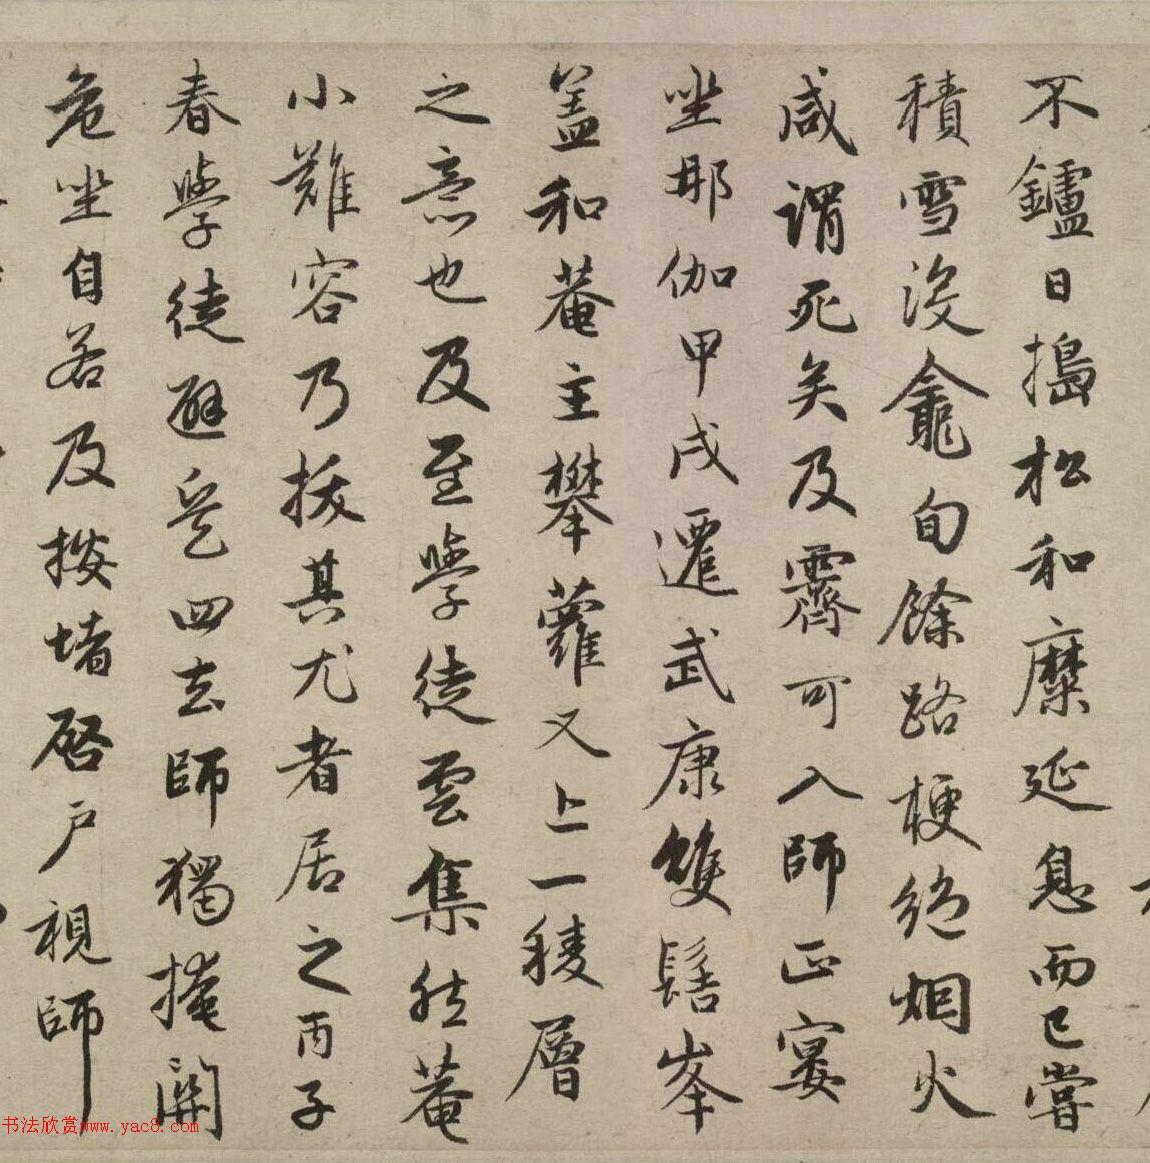 不鑪日搗松和糜延息而已嘗
積雪没龕旬餘路梗絶烟火
咸謂死矣及霽可入師正宴
坐那伽甲戌遷武康雙髻峯
盖和菴主攀蘿又上一稜層
之意也及至學徒雲集然菴
小難容乃拔其尤者居之丙子
春學徒避兵四去師獨掩關
危坐自若及按堵啓户視師
书法欣赏www.yac8.com